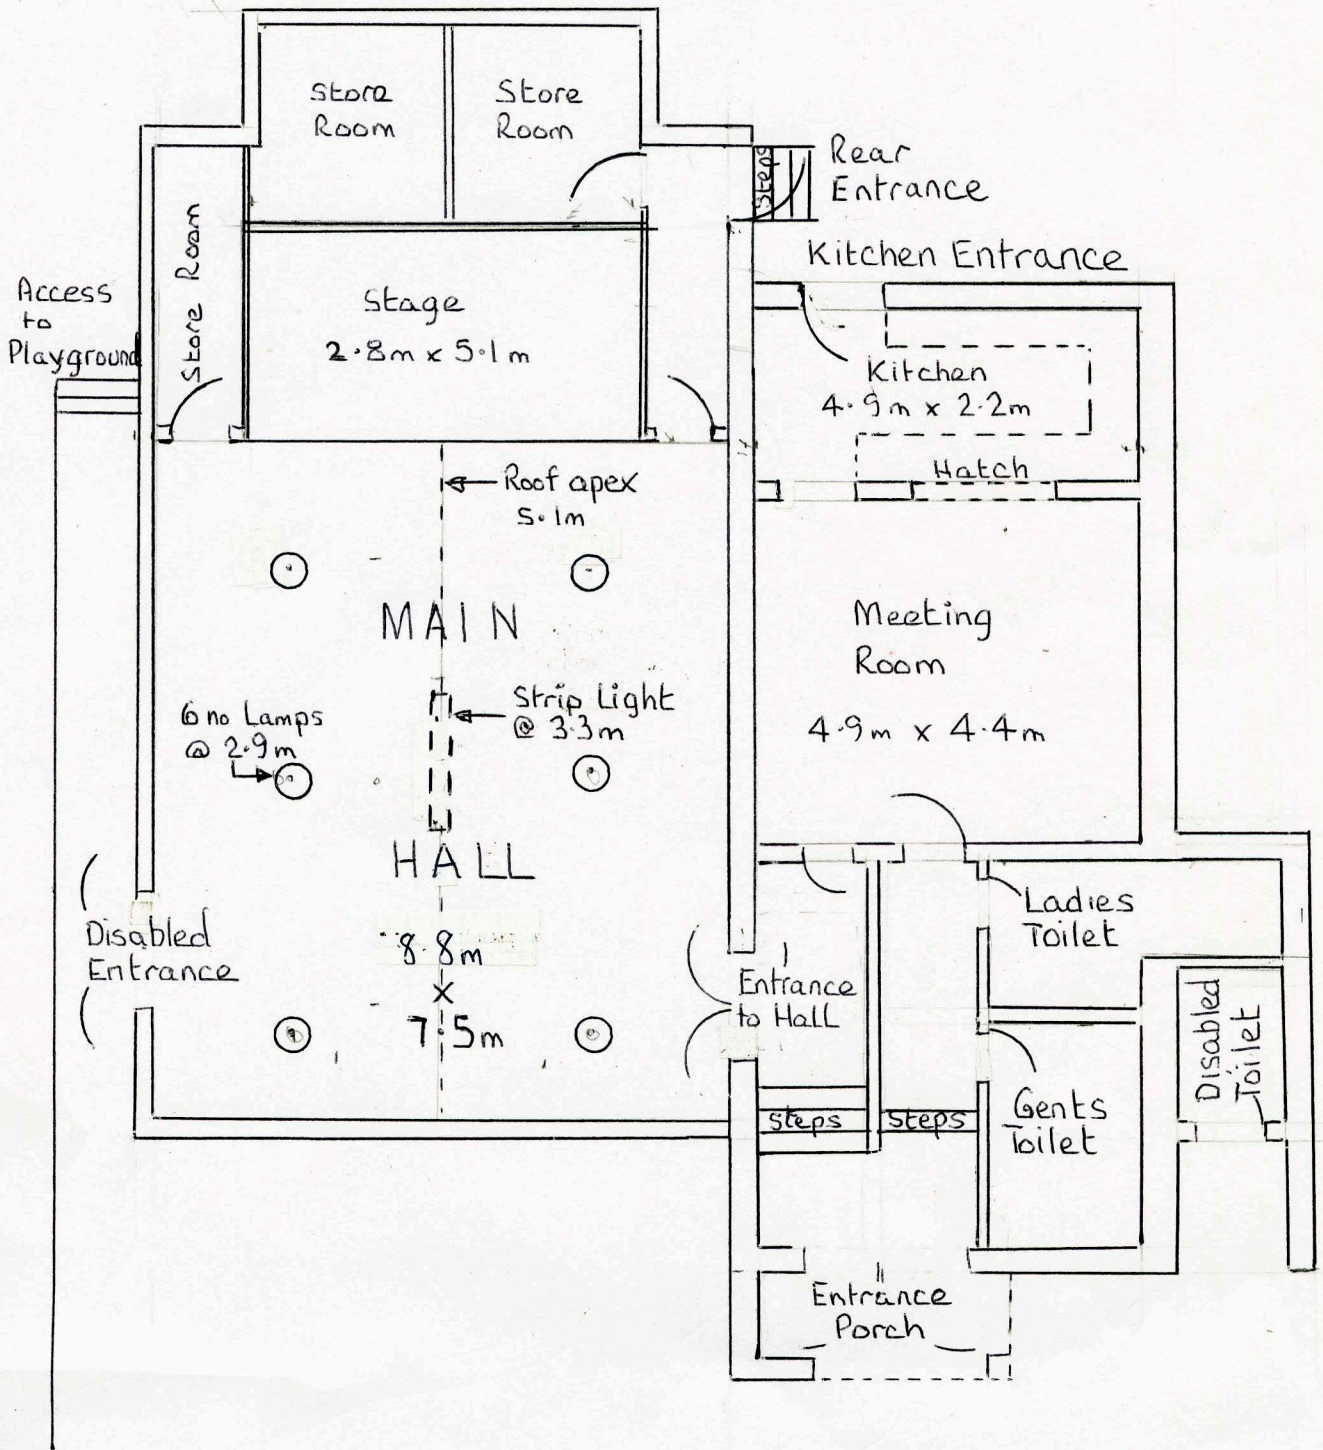 Store
Room
Store
Room
Steps
Rear
Entrance
Kitchen Entrance
Access
to
Playground
Store Room
Stage
2.8m x 5.1m
Kitchen
4.9m x 2.2m
Hatch
Roof apex
5.1m
MAIN
Meeting
Room
4.9m x 4.4m
6 no Lamps
@ 2.9m
Strip Light
@ 3.3m
HALL
8.8m
x
7.5m
Disabled
Entrance
Entrance
to Hall
Ladies
Toilet
Disabled
Toilet
Gents
Toilet
Steps
Steps
Entrance
Porch